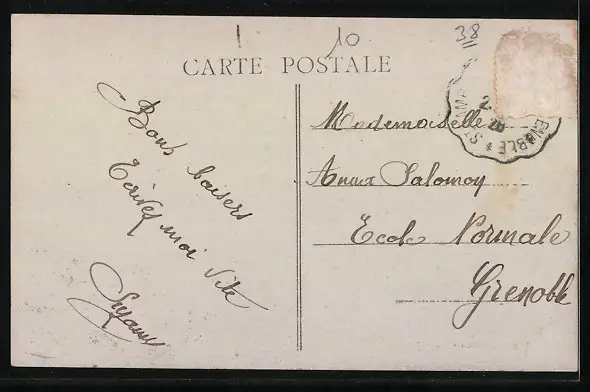 1
10
38
CARTE POSTALE
Bons baisers
Ecrivez moi vite
Suzanne
Mademoiselle
Salomon
Ecole Normale
Grenoble